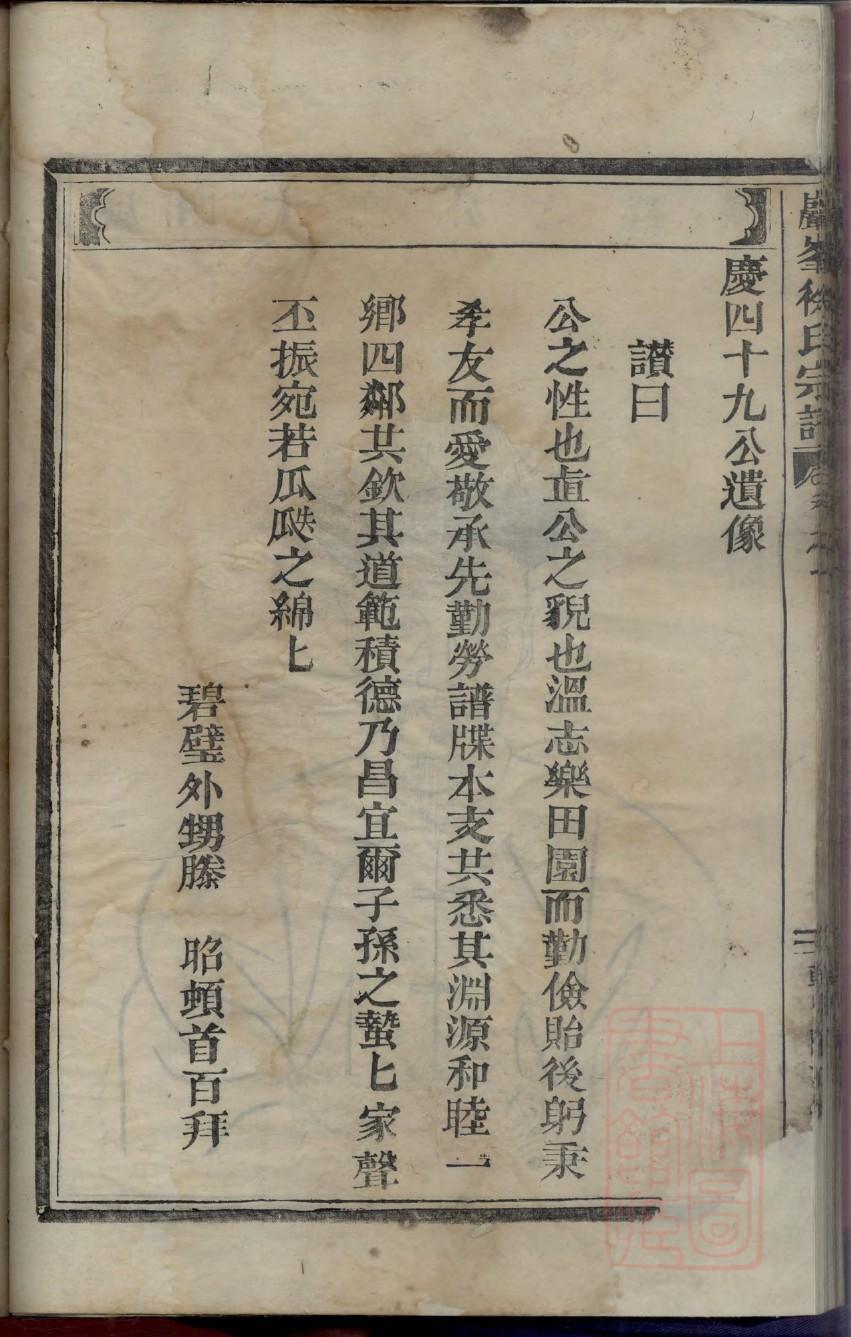 巖峯徐氏宗譜 卷之一
慶四十九公遺像
讃曰
公之性也直公之貌也溫志樂田園而勤儉貽後躬秉
孝友而愛敬承先勤勞譜牒本支共悉其淵源和睦一
鄉四鄰共欽其道範積德乃昌宜爾子孫之蟄匕家聲
丕振宛若瓜瓞之綿匕
碧璧外甥滕 昭頓首百拜